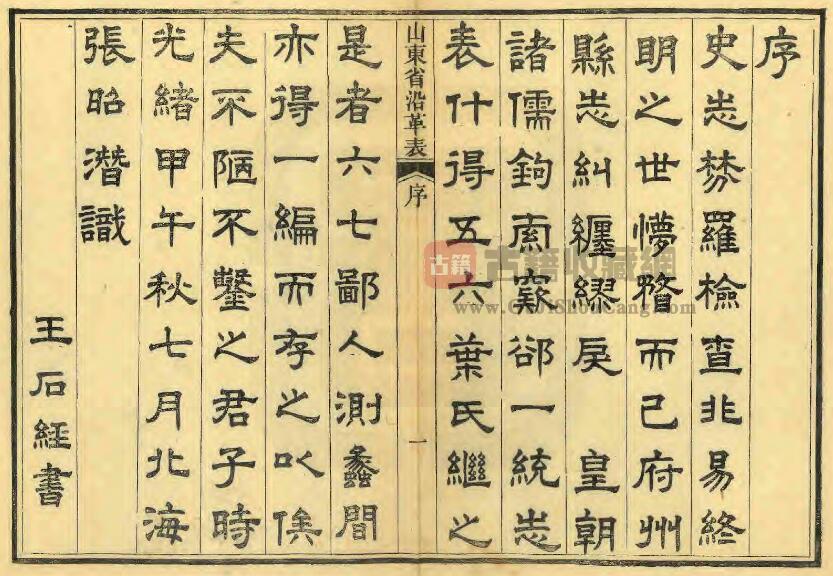 序
史志棼羅檢查非易終
明之世懜瞀而已府州
縣志糾纏繆戾 皇朝
諸儒鉤索窾郤一統志
表什得五六葉氏繼之
山東省沿革表 序 一
是者六七鄙人測蠡間
亦得一編而存之以俟
夫不陋不鑿之君子時
光緒甲午秋七月北海
張昭潛識
王石經書
古籍
古籍收藏網
www.GuJiShouCang.com